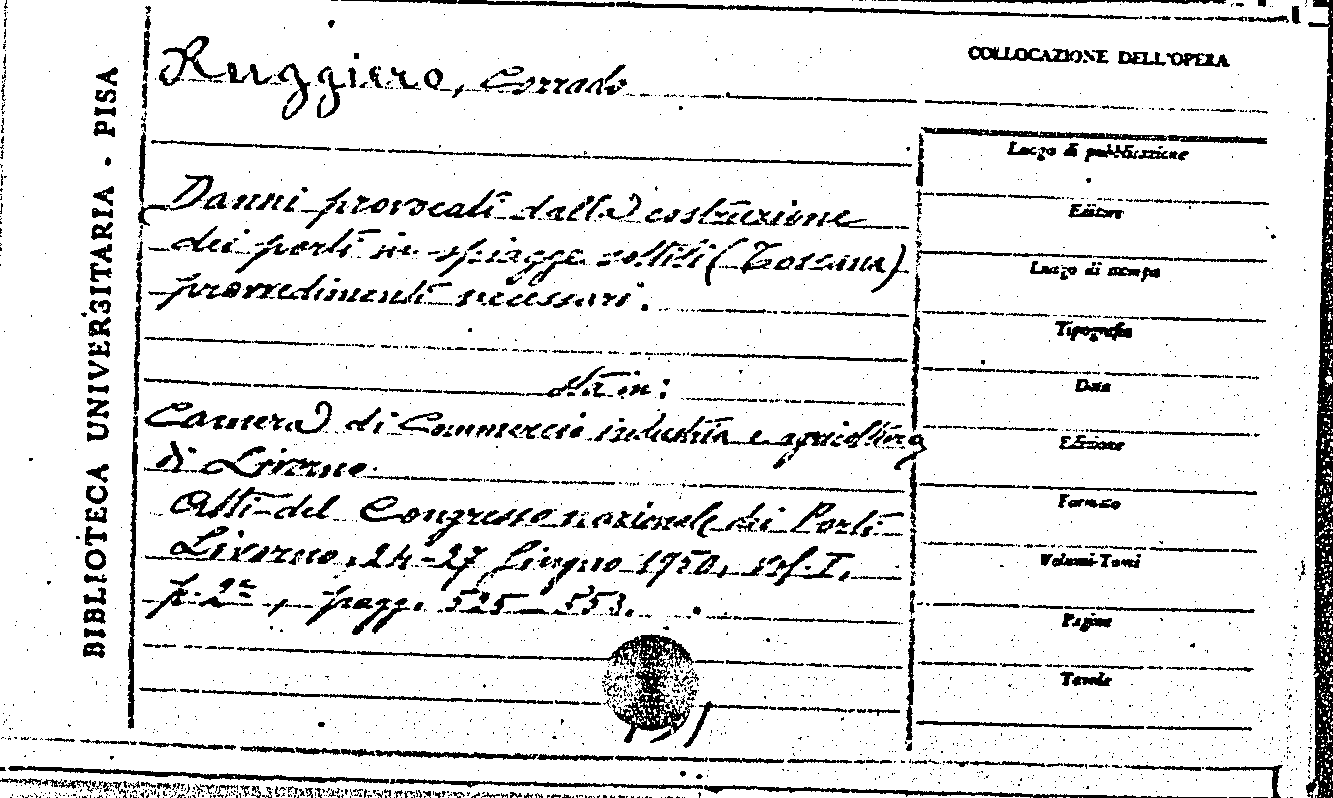 BIBLIOTECA UNIVERSITARIA - PISA
Ruggiero, Corrado
Danni provocati dalla costruzione
dei porti in spiagge sottili (Toscana)
provvedimenti necessari.
sta in:
Camera di Commercio industria e agricoltura
di Livorno
Atti del Congresso nazionale dei Porti
Livorno, 24-27 Giugno 1950, vol. I,
p. 2ª, pagg. 525-553.
COLLOCAZIONE DELL'OPERA
Luogo di pubblicazione
Editore
Luogo di stampa
Tipografia
Data
Edizione
Formato
Volumi-Tomi
Pagine
Tavole